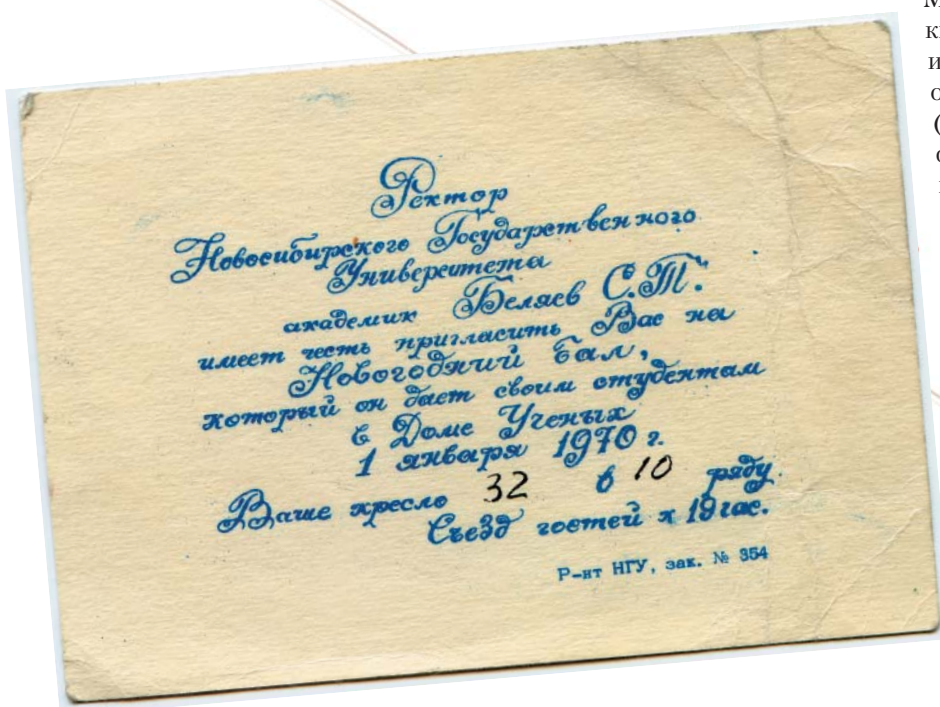 Ректор
Новосибирского Государственного
Университета
академик Беляев С.Т.
имеет честь пригласить Вас на
Новогодний бал,
который он дает своим студентам
в Доме Ученых
1 января 1970 г.
Ваше кресло 32 в 10 ряду
Съезд гостей к 19 час.
Р-нт НГУ, зак. № 354